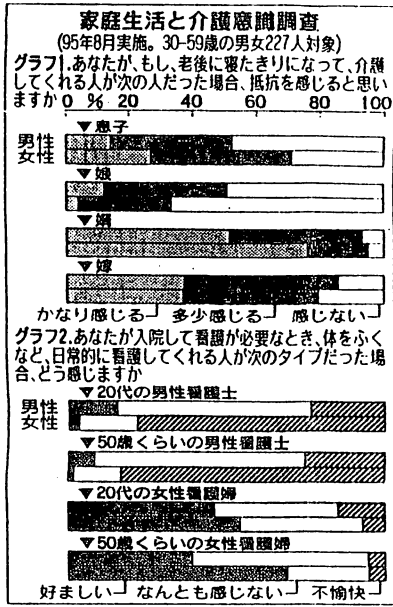 家庭生活と介護意識調査
(95年8月実施。30-59歳の男女227人対象)
グラフ1.あなたが、もし、老後に寝たきりになって、介護
してくれる人が次の人だった場合、抵抗を感じると思い
ますか 0 % 20 40 60 80 100
▼息子
男性
女性
▼娘
▼婿
▼嫁
かなり感じる 多少感じる 感じない
グラフ2.あなたが入院して看護が必要なとき、体をふく
など、日常的に看護してくれる人が次のタイプだった場
合、どう感じますか
▼20代の男性看護士
男性
女性
▼50歳くらいの男性看護士
▼20代の女性看護婦
▼50歳くらいの女性看護婦
好ましい なんとも感じない 不愉快